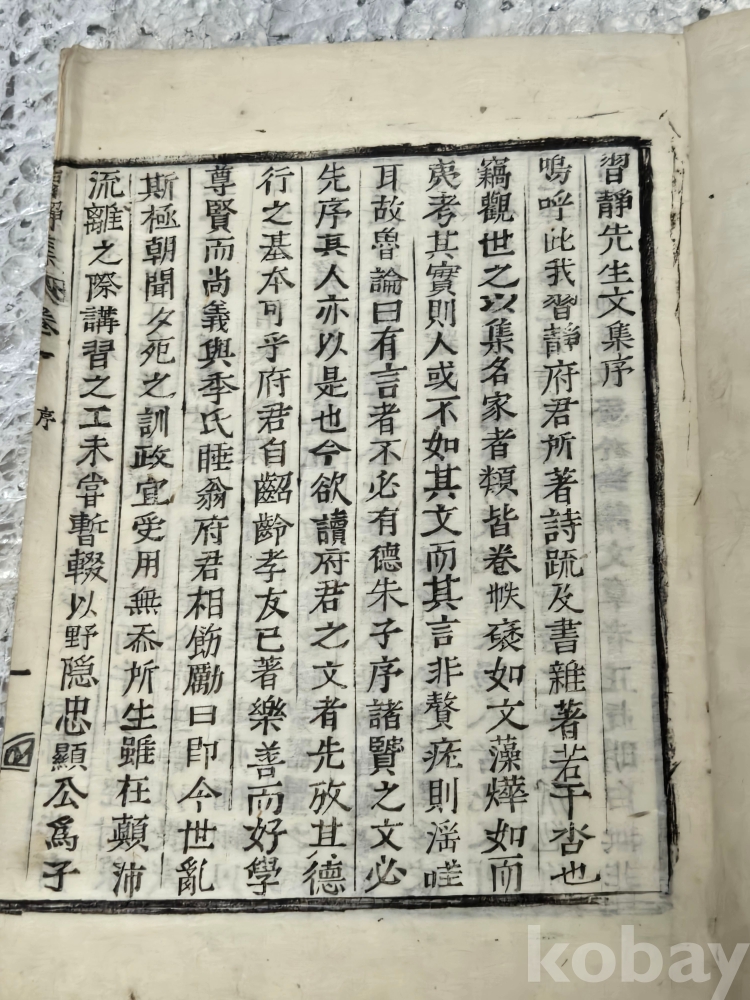 習靜先生文集序
嗚呼此我習靜府君所著詩疏及書雜著若干卷也
竊觀世之以集名家者類皆卷帙褎如文藻燁如而
夷考其實則人或不如其文而其言非贅疣則滛哇
耳故魯論曰有言者不必有德朱子序諸賢之文必
先序其人亦以是也今欲讀府君之文者先攷其德
行之基本可乎府君自齠齡孝友已著樂善而好學
尊賢而尚義與季氏睡翁府君相飭勵曰即今世亂
斯極朝聞夕死之訓政宜受用無忝所生雖在顛沛
流離之際講習之工未甞暫輟以野隐忠顯公爲子
習靜集 卷一 序 一
kobay